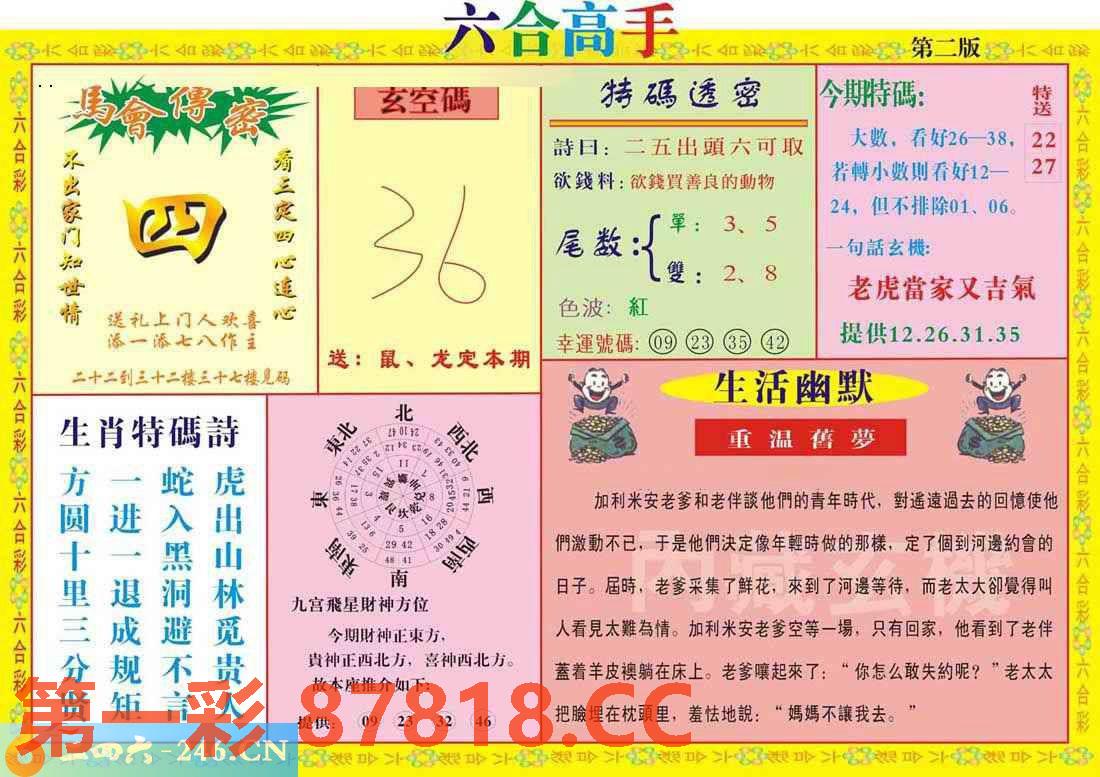 六合高手
第二版
馬會傳密
不出家门知世情
四
看三定四心連心
送礼上门人欢喜
添一添七八作主
二十二到三十二楼三十七楼見码
玄空碼
36
送：鼠、龙定本期
特碼透密
詩曰：二五出頭六可取
欲錢料：欲錢買善良的動物
尾数：
單：3、5
雙：2、8
色波：紅
幸運號碼：09 23 35 42
今期特碼：
特送
22
27
大數，看好26—38，
若轉小數則看好12—
24，但不排除01、06。
一句話玄機：
老虎當家又吉氣
提供12.26.31.35
生肖特碼詩
虎出山林觅贵人
蛇入黑洞避不言
一进一退成规矩
方圆十里三分贤
北
東北
西北
東
西
東南
西南
南
九宫飛星財神方位
今期財神正東方，
貴神正西北方，喜神西南方。
故本座推介如下：
提供：09 23 32 46
生活幽默
重温舊夢
加利米安老爹和老伴談他們的青年時代，對遙遠過去的回憶使他
們激動不已，于是他們決定像年輕時做的那樣，定了個到河邊約會的
日子。屆時，老爹采集了鮮花，來到了河邊等待，而老太大卻覺得叫
人看見太難為情。加利米安老爹空等一場，只有回家，他看到了老伴
蓋着羊皮襖躺在床上。老爹嚷起來了：“你怎么敢失約呢？”老太太
把臉埋在枕頭里，羞怯地說：“媽媽不讓我去。”
内藏玄機
第一彩 87818.CC
二四六-246.CN